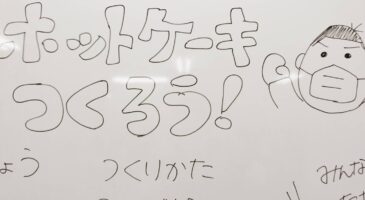 ホットケーキ
つくろう!
ょう つくりかた みんな